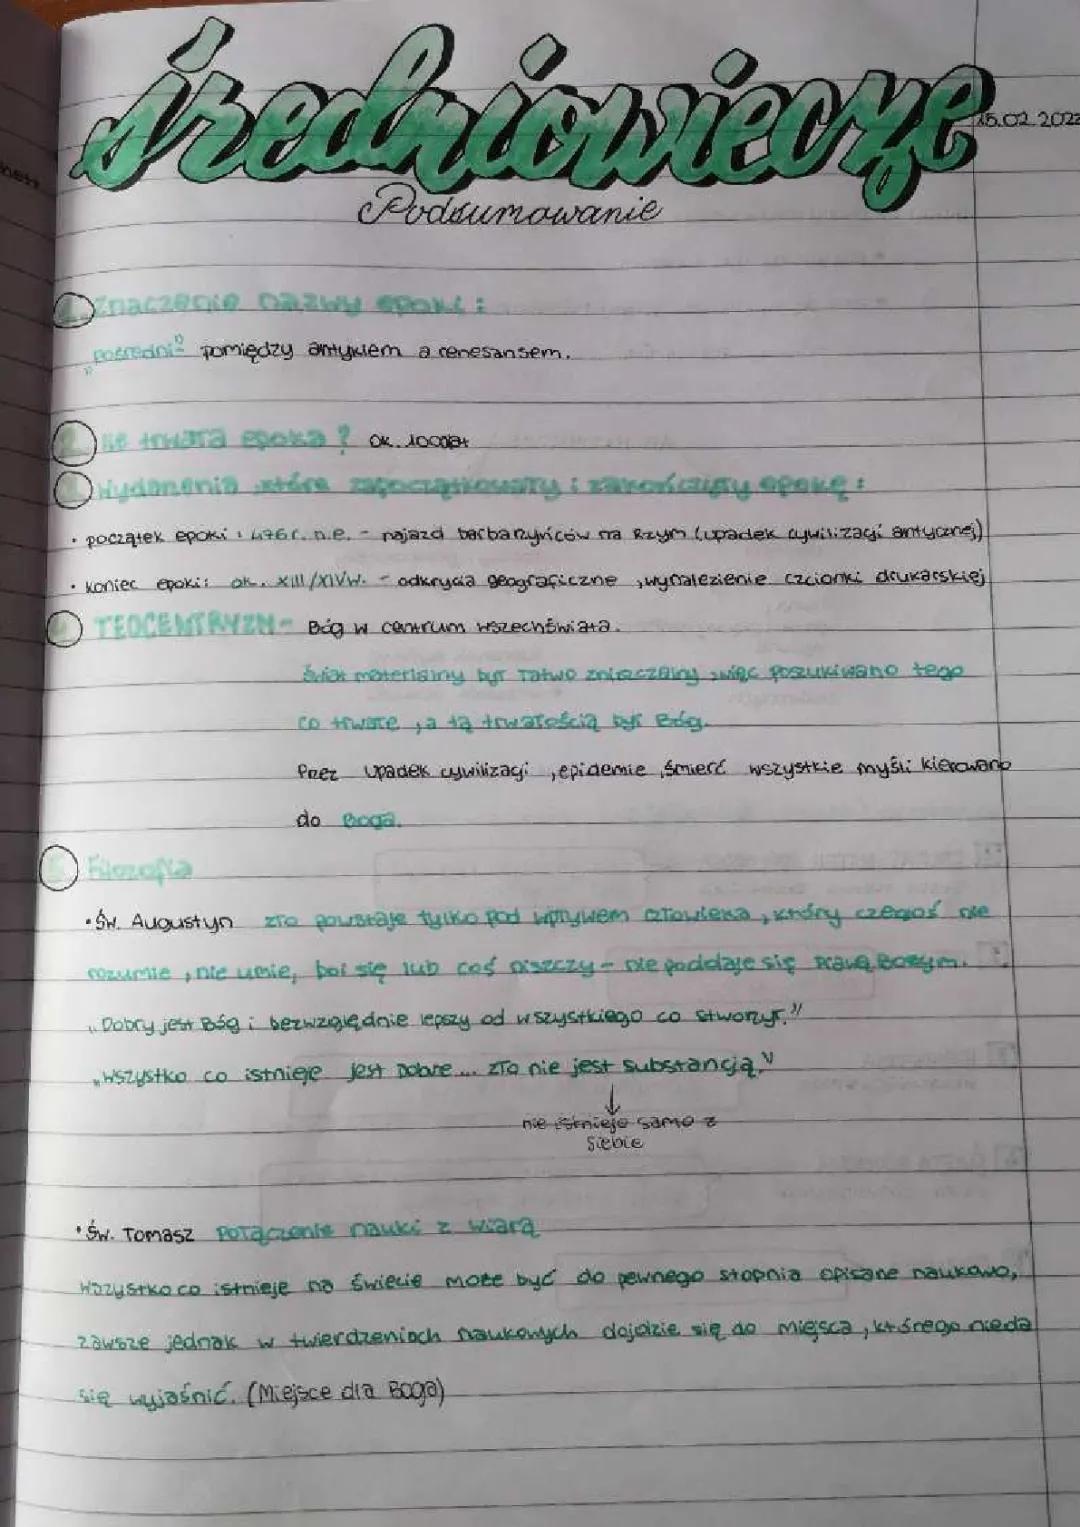 średniowiecze
15.02.2022
Podsumowanie
1. Znaczenie nazwy epoki:
„pośredni” pomiędzy antykiem a renesansem.
2. Ile trwała epoka? ok. 1000lat
3. Wydarzenia, które zapoczątkowały i zakończyły epokę:
• początek epoki: 476r. n.e. - najazd barbarzyńców na Rzym (upadek cywilizacji antycznej)
• koniec epoki: ok. XIII/XIVw. - odkrycia geograficzne, wynalezienie czcionki drukarskiej
4 TEOCENTRYZM - Bóg w centrum wszechświata.
Świat materialny był łatwo zniszczalny, więc poszukiwano tego
co trwałe, a tą trwałością był Bóg.
Przez upadek cywilizacji, epidemie, śmierć wszystkie myśli kierowano
do Boga.
5 Filozofia
• Św. Augustyn zło powstaje tylko pod wpływem człowieka, który czegoś nie
rozumie, nie umie, boi się lub coś niszczy - nie poddaje się prawą Bożym.
„Dobry jest Bóg i bezwzględnie lepszy od wszystkiego co stworzył.”
„Wszystko co istnieje jest Dobre... zło nie jest substancją.”
↓
nie istnieje samo z
siebie
• Św. Tomasz Połączenie nauki z wiarą
Wszystko co istnieje na świecie może być do pewnego stopnia opisane naukowo,
zawsze jednak w twierdzeniach naukowych dojdzie się do miejsca, którego nieda
się wyjaśnić. (Miejsce dla Boga)